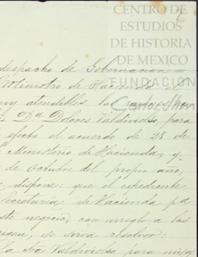 CENTRO DE
ESTUDIOS
DE HISTORIA
DE MEXICO
FUNDACIÓN
Carlos Slim
despacho de Gobernacion
Ministro de Hacienda
muy atendibles la
Dª Dolores Valdivieso para
efecto el acuerdo de 28 de
Ministerio de Hacienda, y
de Octubre del propio año,
dispone: que el espediente
Secretaria de Hacienda pa
este negocio, con arreglo a las
se sirva resolver:
la Sra Valdivieso para